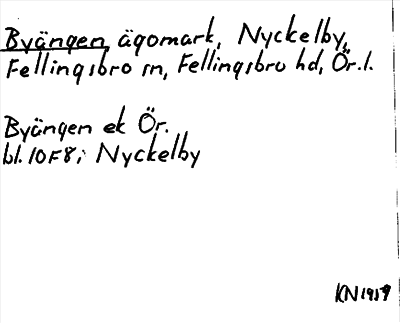 Byängen, ägomark, Nyckelby,
Fellingsbro sn, Fellingsbro hd, Ör.l.
Byängen ek Ör.
bl. 10F8i Nyckelby
KN 1959